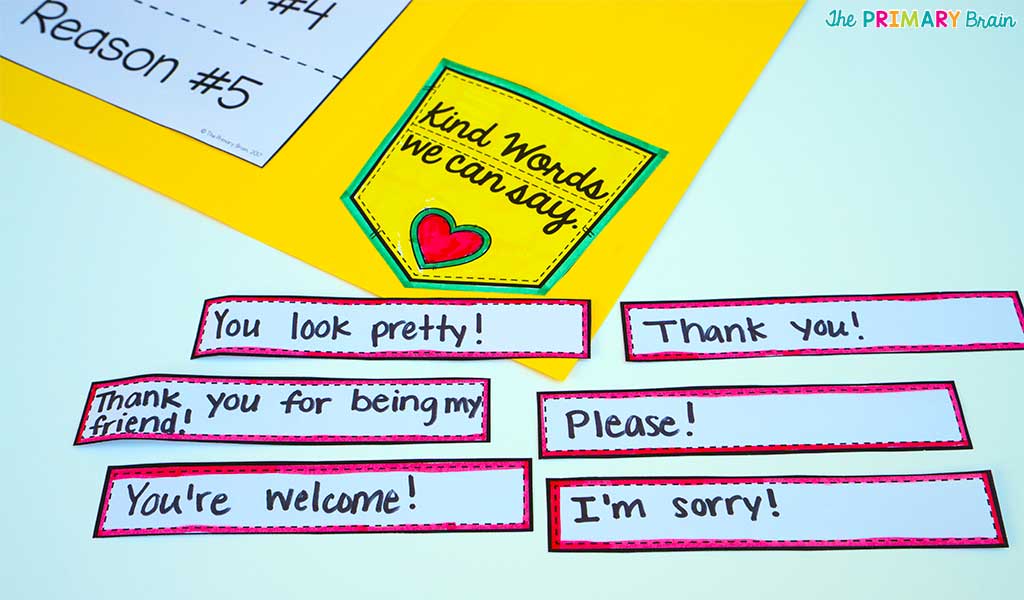 The PRIMARY Brain
#4
Reason #5
© The Primary Brain, 2017
Kind Words
we can say.
You look pretty!
Thank you!
Thank you for being my
friend!
Please!
You're welcome!
I'm sorry!